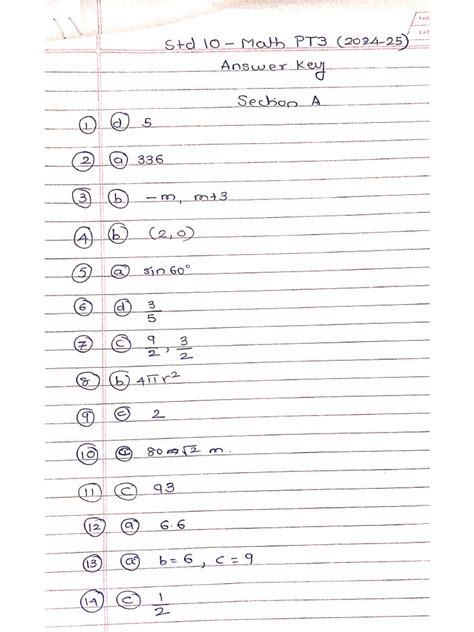 Std 10 - Math PT3 (2024-25)
Answer key
Section A
1 d 5
2 a 336
3 b -m, m+3
4 b (2,0)
5 a sin 60°
6 d 3/5
7 c 9/2, 3/2
8 b 4πr²
9 c 2
10 80√2 m.
11 c 93
12 a 6.6
13 a b=6, c=9
14 c 1/2